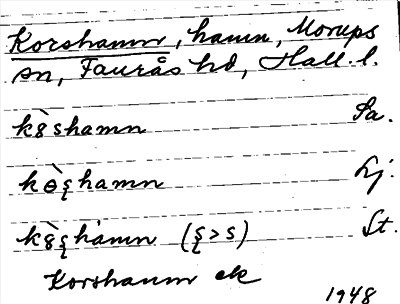 Korshamn, hamn, Morups
sn, Faurås hd, Hall. l.
kȣ̀shamn Sa.
kɵ̀ʂhamn Lj.
kȣ̀ʂhámn (ʂ>s) St.
Korshamn ek
1948